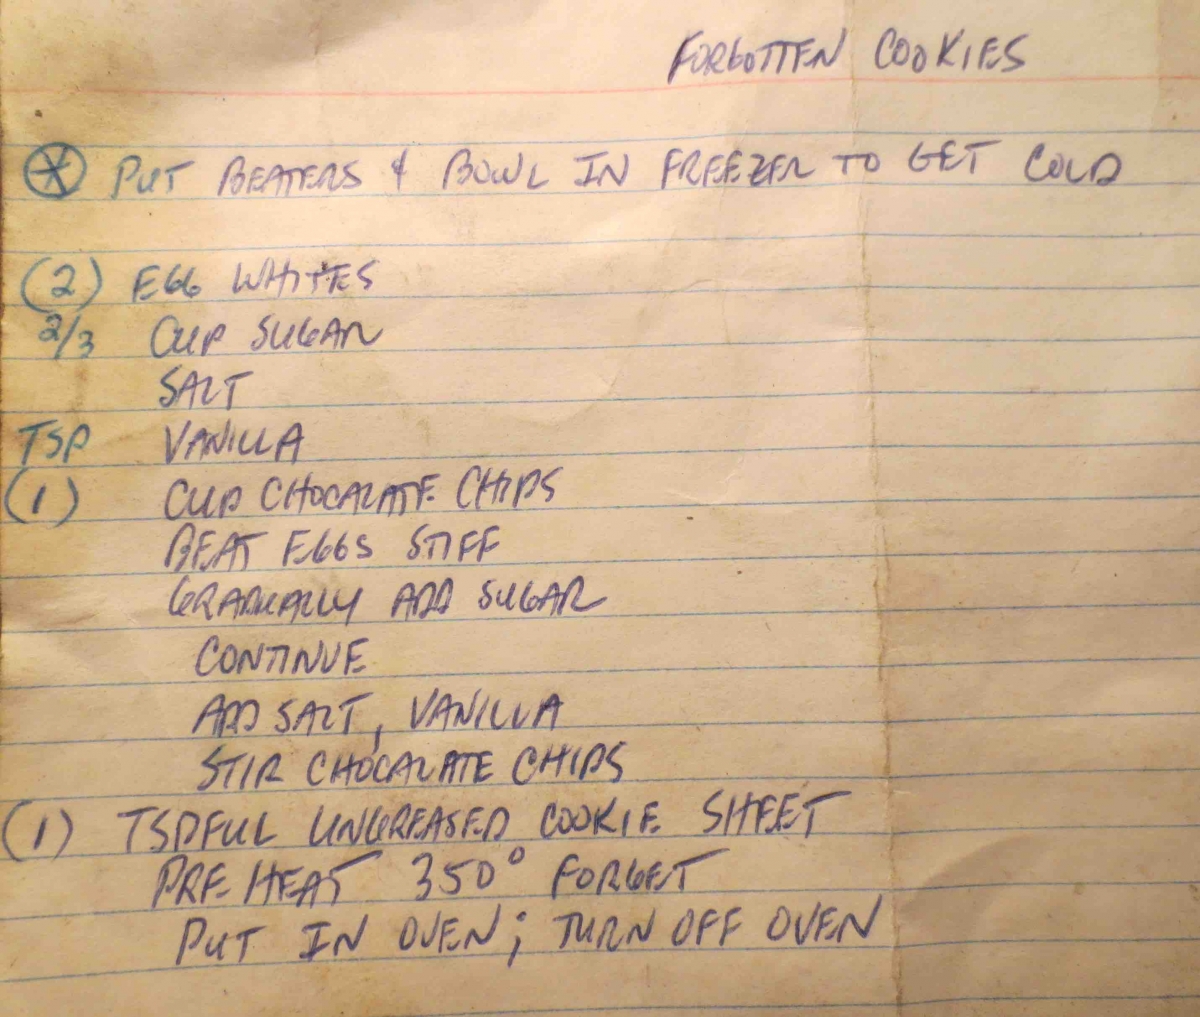 FORGOTTEN COOKIES
* PUT BEATERS & BOWL IN FREEZER TO GET COLD
(2) EGG WHITES
2/3 CUP SUGAR
SALT
TSP VANILLA
(1) CUP CHOCALATE CHIPS
BEAT EGGS STIFF
GRADUALLY ADD SUGAR
CONTINUE
ADD SALT, VANILLA
STIR CHOCALATE CHIPS
(1) TSPFUL UNGREASED COOKIE SHEET
PRE HEAT 350° FORGET
PUT IN OVEN; TURN OFF OVEN